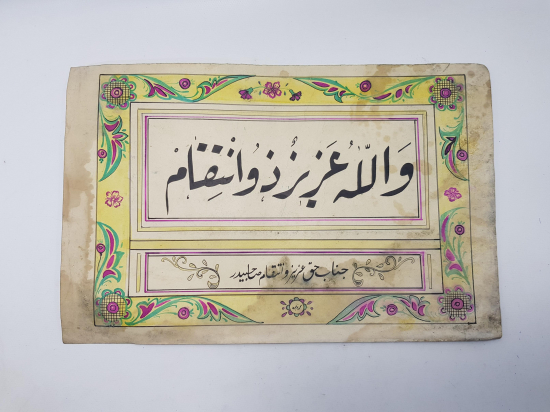 وَاللّٰهُ عَزِيزٌ ذُو انْتِقَامٍ
جناب حق عزيز و انتقام صاحبيدر